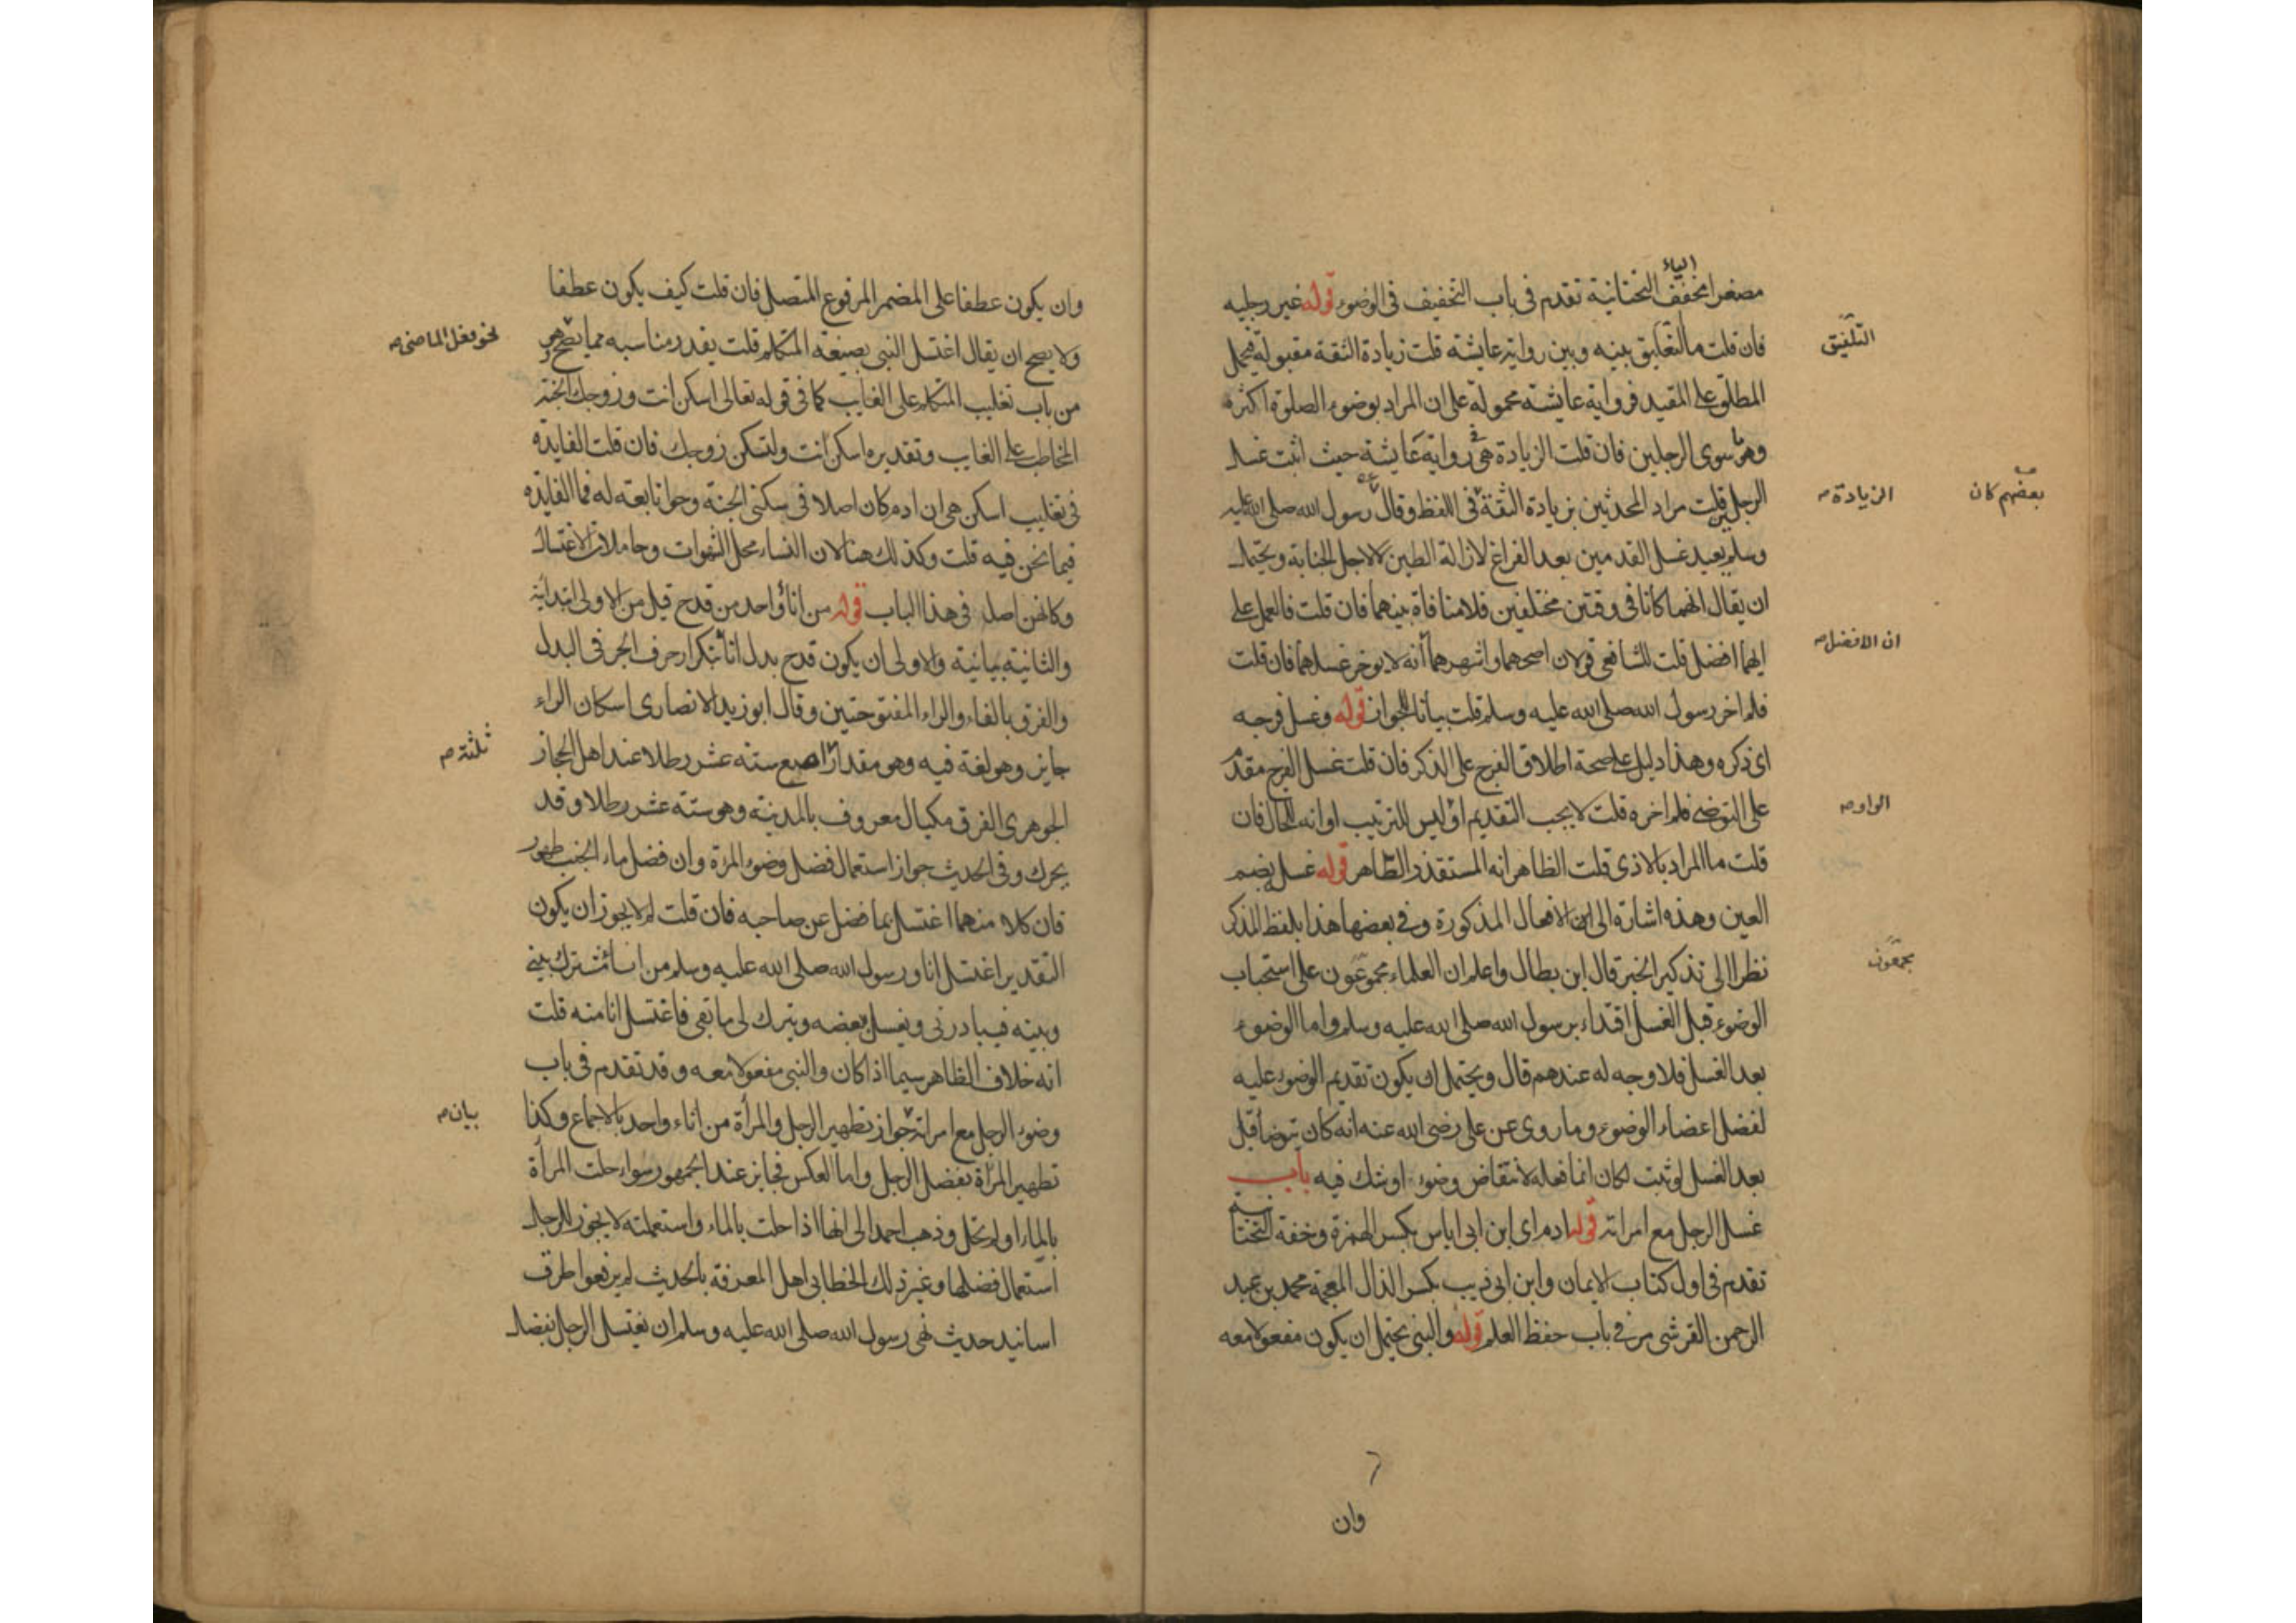 الياء
مصغرا مخفف التحتانية تقدم فى باب التخفيف فى الوضوء قوله غير رجليه
فان قلت ما التعليق بينه وبين رواية عايشة قلت زيادة الثقة مقبولة فيحمل
التلفيق
المطلق على المقيد فرواية عايشة محمولة على ان المراد بوضوء الصلوة اكثره
وهو سوى الرجلين فان قلت الزيادة فى رواية عايشة حيث اثبت غسل
الرجلين قلت مراد المحدثين بزيادة الثقة فى اللفظ وقال رسول الله صلى الله عليه
الزيادة صح
بعضهم كان
وسلم يعيد غسل القدمين بعد الفراغ لازالة الطين لا لاجل الجنابة ويحتمل
ان يقال انهما كانا فى وقتين مختلفين فلا منافاة بينهما فان قلت فالعمل على
ايهما افضل قلت للشافعى قولان اصحهما واشهرهما انه لا يوخر غسلهما فان قلت
ان الافضل صح
فلم اخر رسول الله صلى الله عليه وسلم قلت بيانا للجواز قوله وغسل فرجه
اى ذكره وهذا دليل على صحة اطلاق الفرج على الذكر فان قلت غسل الفرج مقدم
على التوضى فلم اخره قلت لا يجب التقديم او ليس للترتيب او انه للحال فان
الواو صح
قلت ما المراد بالاذى قلت الظاهر انه المستقذر الطاهر قوله غسل بضم
الغين وهذه اشارة الى الافعال المذكورة وفى بعضها هذا بلفظ المذكر
نظرا الى تذكير الخبر قال ابن بطال واعلم ان العلماء مجموعون على استحباب
مجمعون
الوضوء قبل الغسل اقتداء برسول الله صلى الله عليه وسلم واما الوضوء
بعد الغسل فلا وجه له عندهم قال ويحتمل ان يكون تقديم الوضوء عليه
لفضل اعضاء الوضوء وما روى عن على رضى الله عنه انه كان يتوضأ قبل
بعد الغسل لو ثبت لكان انما فعله لانتقاض وضوء او شك فيه باب
غسل الرجل مع امراته قوله ادم اى ابن ابى اياس بكسر الهمزة وخفة التحتانية
تقدم فى اول كتاب الايمان وابن ابى ذيب بكسر الذال المعجمة محمد بن عبد
الرحمن القرشى مر فى باب حفظ العلم قوله والنبى يحتمل ان يكون مفعولا معه
وان
وان يكون عطفا على المضمر المرفوع المتصل فان قلت كيف يكون عطفا
ولا يصح ان يقال اغتسل النبى بصيغة المتكلم قلت يقدر مناسبه مما يصح وهو
نحو فعل الماضى صح
من باب تغليب المتكلم على الغايب كما فى قوله تعالى اسكن انت وزوجك الجنة
المخاطب على الغايب وتقديره اسكن انت ولتسكن زوجك فان قلت الفايدة
فى تغليب اسكن هى ان ادم كان اصلا فى سكنى الجنة وحوا تابعة له فما الفايدة
فيما نحن فيه قلت وكذلك هنا لان النساء محل الشهوات وحاملات الاغتسال
وكانهن اصل فى هذا الباب قوله من اناء واحد من قدح قيل من الاولى ابتدائية
والثانية بيانية والاولى ان يكون قدح بدل اناء بتكرار حرف الجر فى البدل
والفرق بالفاء والراء المفتوحتين وقال ابو زيد الانصارى اسكان الراء
جايز وهو لغة فيه وهو مقدار اصبع ستة عشر رطلا عند اهل الحجاز
ثلثة صح
الجوهرى الفرق مكيال معروف بالمدينة وهو ستة عشر رطلا وقد
يحرك وفى الحديث جواز استعمال فضل وضوء المرة وان فضل ماء الجنب طهور
فان كلا منهما اغتسل بما فضل عن صاحبه فان قلت لم لا يجوز ان يكون
التقدير اغتسل انا ورسول الله صلى الله عليه وسلم من اناء مشترك بينى
وبينه فيبادرنى ويغسل ببعضه ويترك لى ما بقى فاغتسل انا منه قلت
انه خلاف الظاهر سيما اذا كان والنبى مفعولا معه وقد تقدم فى باب
وضوء الرجل مع امراته جواز تطهير الرجل والمرأة من اناء واحد بالاجماع وكذا
بيان صح
تطهير المرأة بفضل الرجل واما العكس فجايز عند الجمهور سواء خلت المرأة
بالماء او لم تخل وذهب احمد الى انها اذا خلت بالماء واستعملته لا يجوز للرجل
استعمال فضلها وغير ذلك الخطابى اهل المعرفة بالحديث لم يرفعوا طرق
اسانيد حديث نهى رسول الله صلى الله عليه وسلم ان يغتسل الرجل بفضل